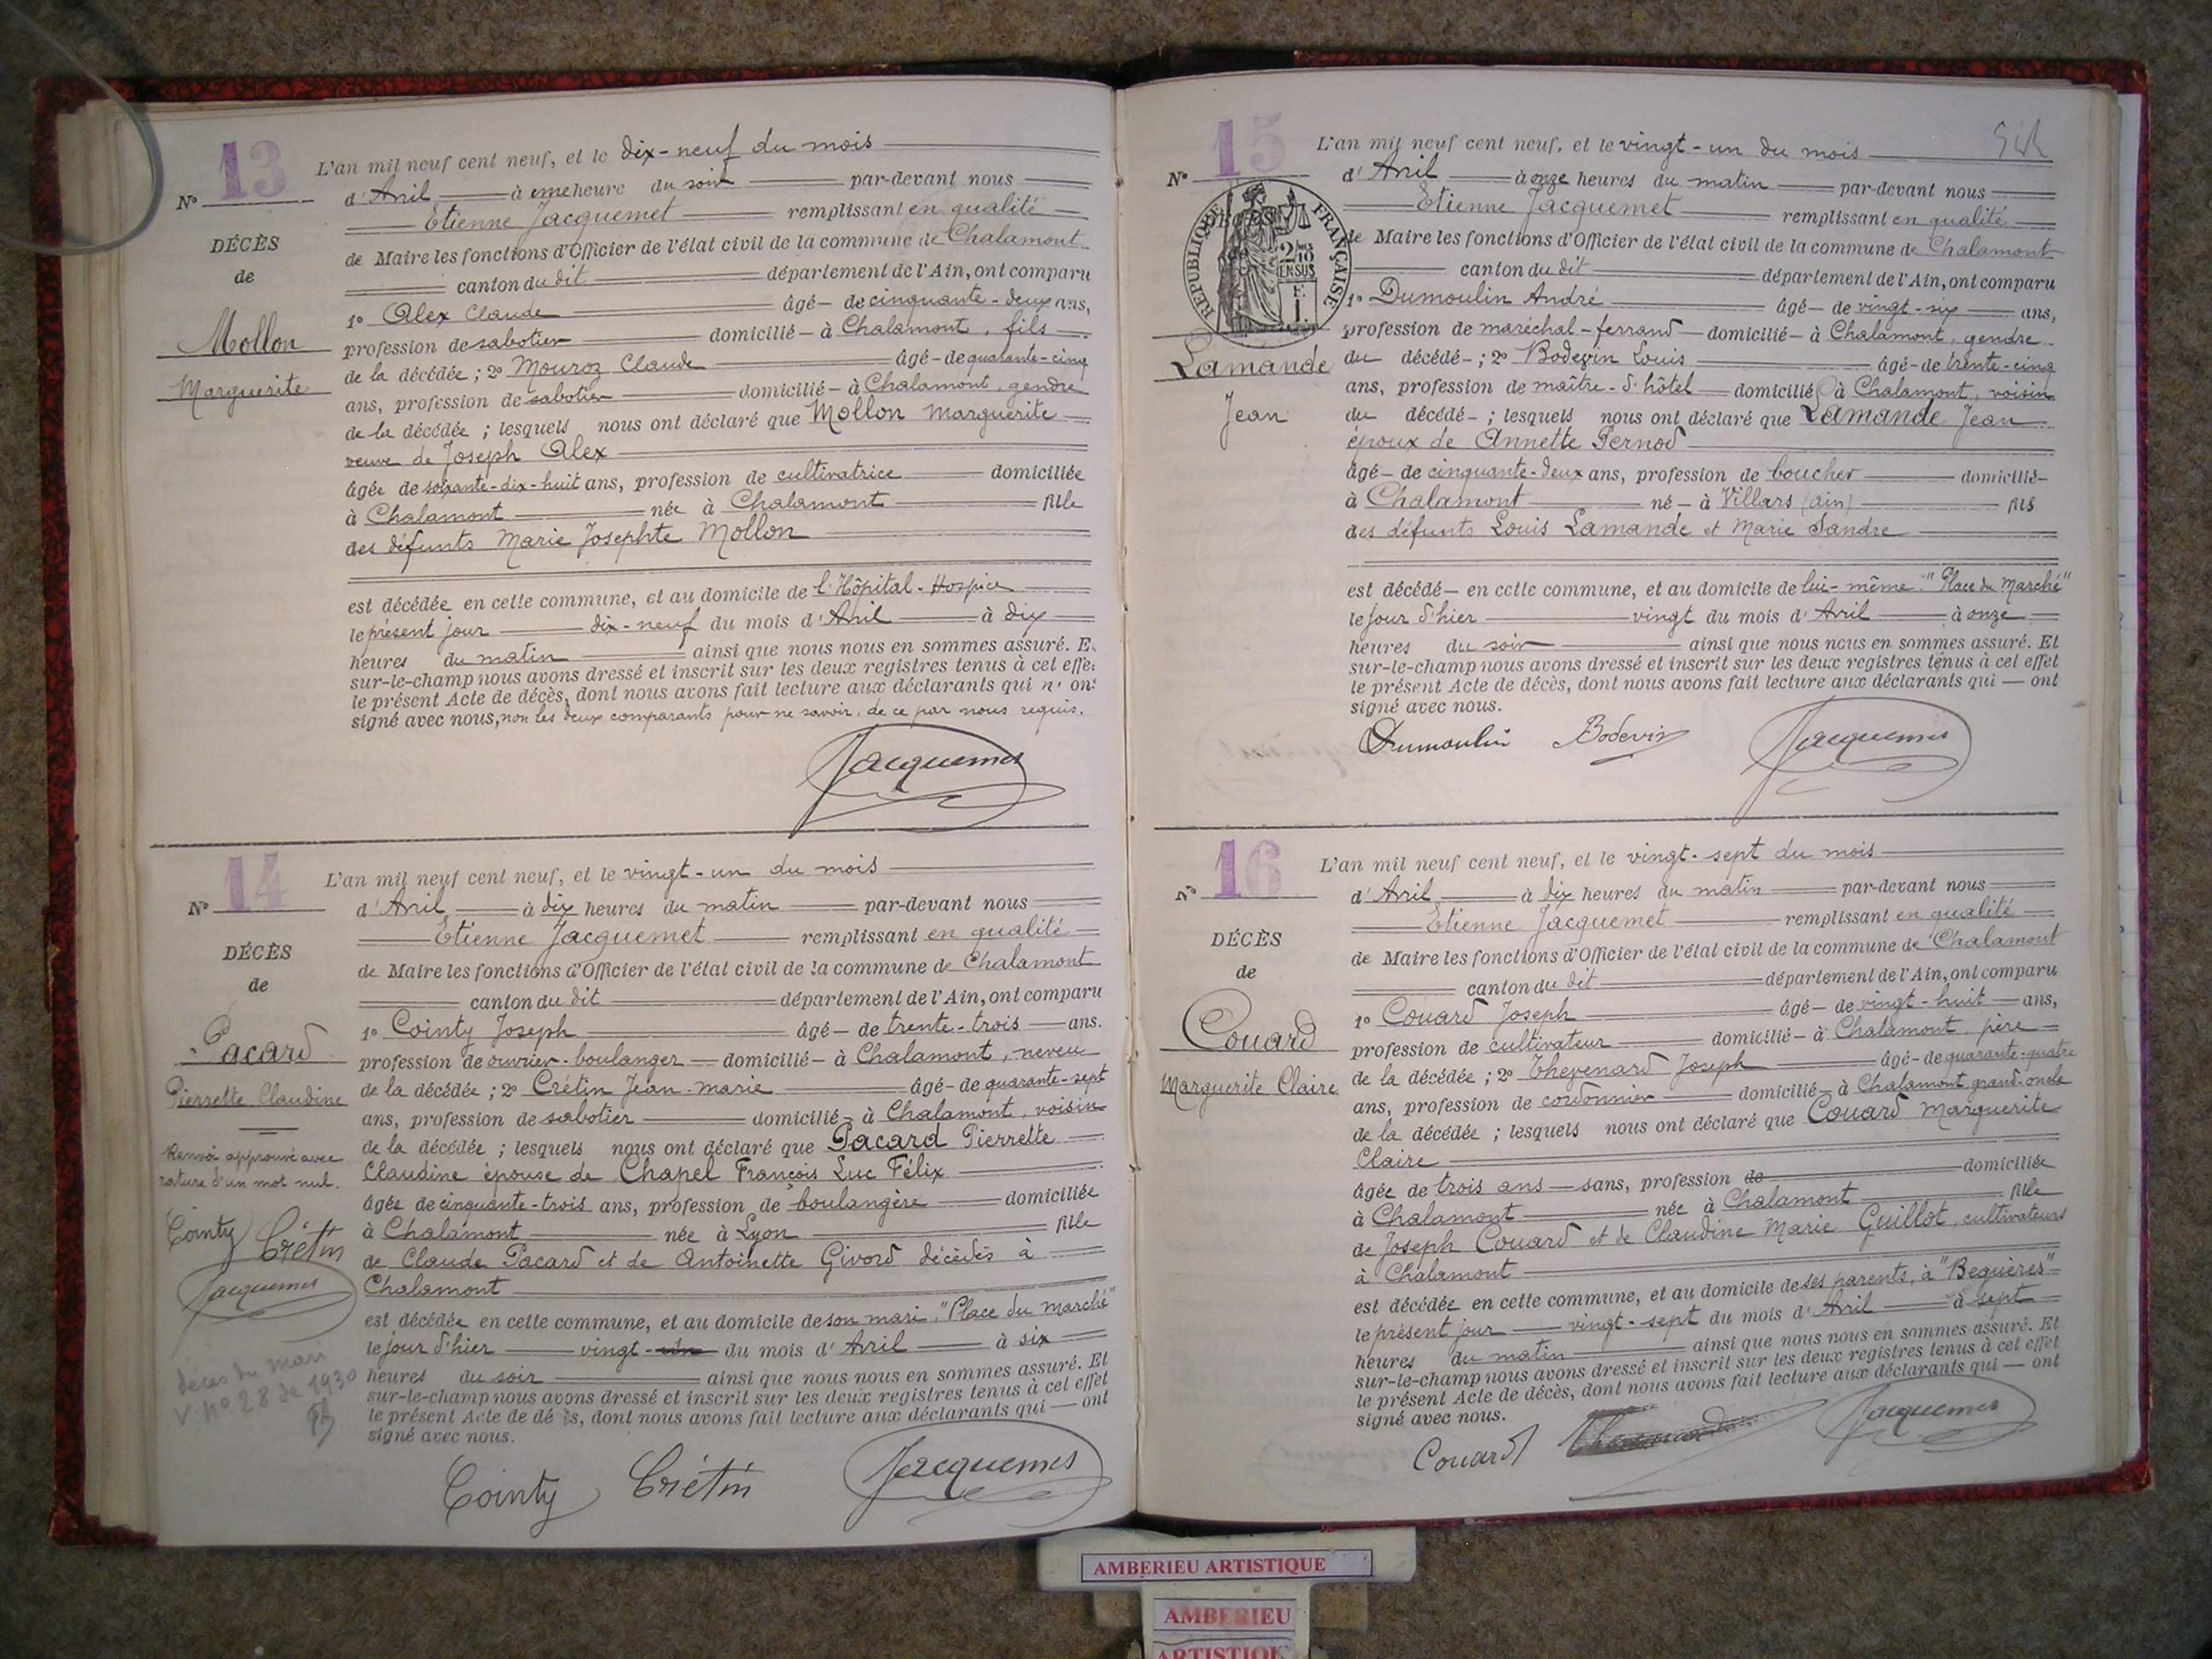 13
L'an mil neuf cent neuf, et le dix-neuf du mois
N°
d'Avril à une heure du soir par-devant nous
Etienne Jacquemet remplissant en qualité
DÉCÈS
de Maire les fonctions d'Officier de l'état civil de la commune de Chalamont
de
canton du dit département de l'Ain, ont comparu
1° Alex Claude âgé de cinquante-deux ans,
Mollon
profession de sabotier domicilié à Chalamont, fils
Marguerite
de la décédée ; 2° Mouroz Claude âgé de quarante-cinq
ans, profession de sabotier domicilié à Chalamont, gendre
de la décédée ; lesquels nous ont déclaré que Mollon Marguerite
veuve de Joseph Alex
âgée de soixante-dix-huit ans, profession de cultivatrice domiciliée
à Chalamont née à Chalamont fille
des défunts Marie Josephte Mollon
est décédée en cette commune, et au domicile de l'Hôpital-Hospice
le présent jour dix-neuf du mois d'Avril à dix
heures du matin ainsi que nous nous en sommes assuré. E
sur-le-champ nous avons dressé et inscrit sur les deux registres tenus à cet effe
le présent Acte de décès, dont nous avons fait lecture aux déclarants qui n'ont
signé avec nous, non les deux comparants pour ne savoir, de ce par nous requis.
Jacquemet
14
L'an mil neuf cent neuf, et le vingt-un du mois
N°
d'Avril à dix heures du matin par-devant nous
Etienne Jacquemet remplissant en qualité
DÉCÈS
de Maire les fonctions d'Officier de l'état civil de la commune de Chalamont
de
canton du dit département de l'Ain, ont comparu
1° Cointy Joseph âgé de trente-trois ans.
Pacard
profession de ouvrier-boulanger domicilié à Chalamont, neveu
Pierrette Claudine
de la décédée ; 2° Crétin Jean-Marie âgé de quarante-sept
ans, profession de sabotier domicilié à Chalamont, voisin
de la décédée ; lesquels nous ont déclaré que Pacard Pierrette
Renvoi approuvé avec
Claudine épouse de Chapel François Luc Félix
rature d'un mot nul.
âgée de cinquante-trois ans, profession de boulangère domiciliée
à Chalamont née à Lyon fille
Cointy Crétin
de Claude Pacard et de Antoinette Givord décédés à
Jacquemet
Chalamont
est décédée en cette commune, et au domicile de son mari, "Place du Marché"
le jour d'hier vingt-un du mois d'Avril à six
décès du mari
V. N° 28 de 1930
heures du soir ainsi que nous nous en sommes assuré. Et
sur-le-champ nous avons dressé et inscrit sur les deux registres tenus à cet effet
le présent Acte de dé ès, dont nous avons fait lecture aux déclarants qui ont
signé avec nous.
Cointy Crétin Jacquemet
15
L'an mil neuf cent neuf, et le vingt-un du mois
N°
d'Avril à onze heures du matin par-devant nous
Etienne Jacquemet remplissant en qualité
RÉPUBLIQUE FRANÇAISE
de Maire les fonctions d'Officier de l'état civil de la commune de Chalamont
canton du dit département de l'Ain, ont comparu
1° Dumoulin André âgé de vingt-six ans,
profession de maréchal-ferrand domicilié à Chalamont, gendre
Lamande
du décédé ; 2° Bodevin Louis âgé de trente-cinq
ans, profession de maître-d'hôtel domicilié à Chalamont, voisin
Jean
du décédé ; lesquels nous ont déclaré que Lamande Jean
époux de Annette Pernod
âgé de cinquante-deux ans, profession de boucher domicilié
à Chalamont né à Villars (ain) fils
des défunts Louis Lamande et Marie Sandre
est décédé en cette commune, et au domicile de lui-même "Place du Marché"
le jour d'hier vingt du mois d'Avril à onze
heures du soir ainsi que nous nous en sommes assuré. Et
sur-le-champ nous avons dressé et inscrit sur les deux registres tenus à cet effet
le présent Acte de décès, dont nous avons fait lecture aux déclarants qui ont
signé avec nous.
Dumoulin Bodevin Jacquemet
16
L'an mil neuf cent neuf, et le vingt-sept du mois
N°
d'Avril à dix heures du matin par-devant nous
Etienne Jacquemet remplissant en qualité
DÉCÈS
de Maire les fonctions d'Officier de l'état civil de la commune de Chalamont
de
canton du dit département de l'Ain, ont comparu
1° Couard Joseph âgé de vingt-huit ans,
Couard
profession de cultivateur domicilié à Chalamont, père
Marguerite Claire
de la décédée ; 2° Thevenard Joseph âgé de quarante-quatre
ans, profession de cordonnier domicilié à Chalamont grand-oncle
de la décédée ; lesquels nous ont déclaré que Couard Marguerite
Claire
âgée de trois ans sans, profession de domiciliée
à Chalamont née à Chalamont fille
de Joseph Couard et de Claudine Marie Guillot, cultivateurs
à Chalamont
est décédée en cette commune, et au domicile de ses parents, à "Bequères"
le présent jour vingt-sept du mois d'Avril à sept
heures du matin ainsi que nous nous en sommes assuré. Et
sur-le-champ nous avons dressé et inscrit sur les deux registres tenus à cet effet
le présent Acte de décès, dont nous avons fait lecture aux déclarants qui ont
signé avec nous.
Couard Thevenard Jacquemet
AMBERIEU ARTISTIQUE
AMBERIEU